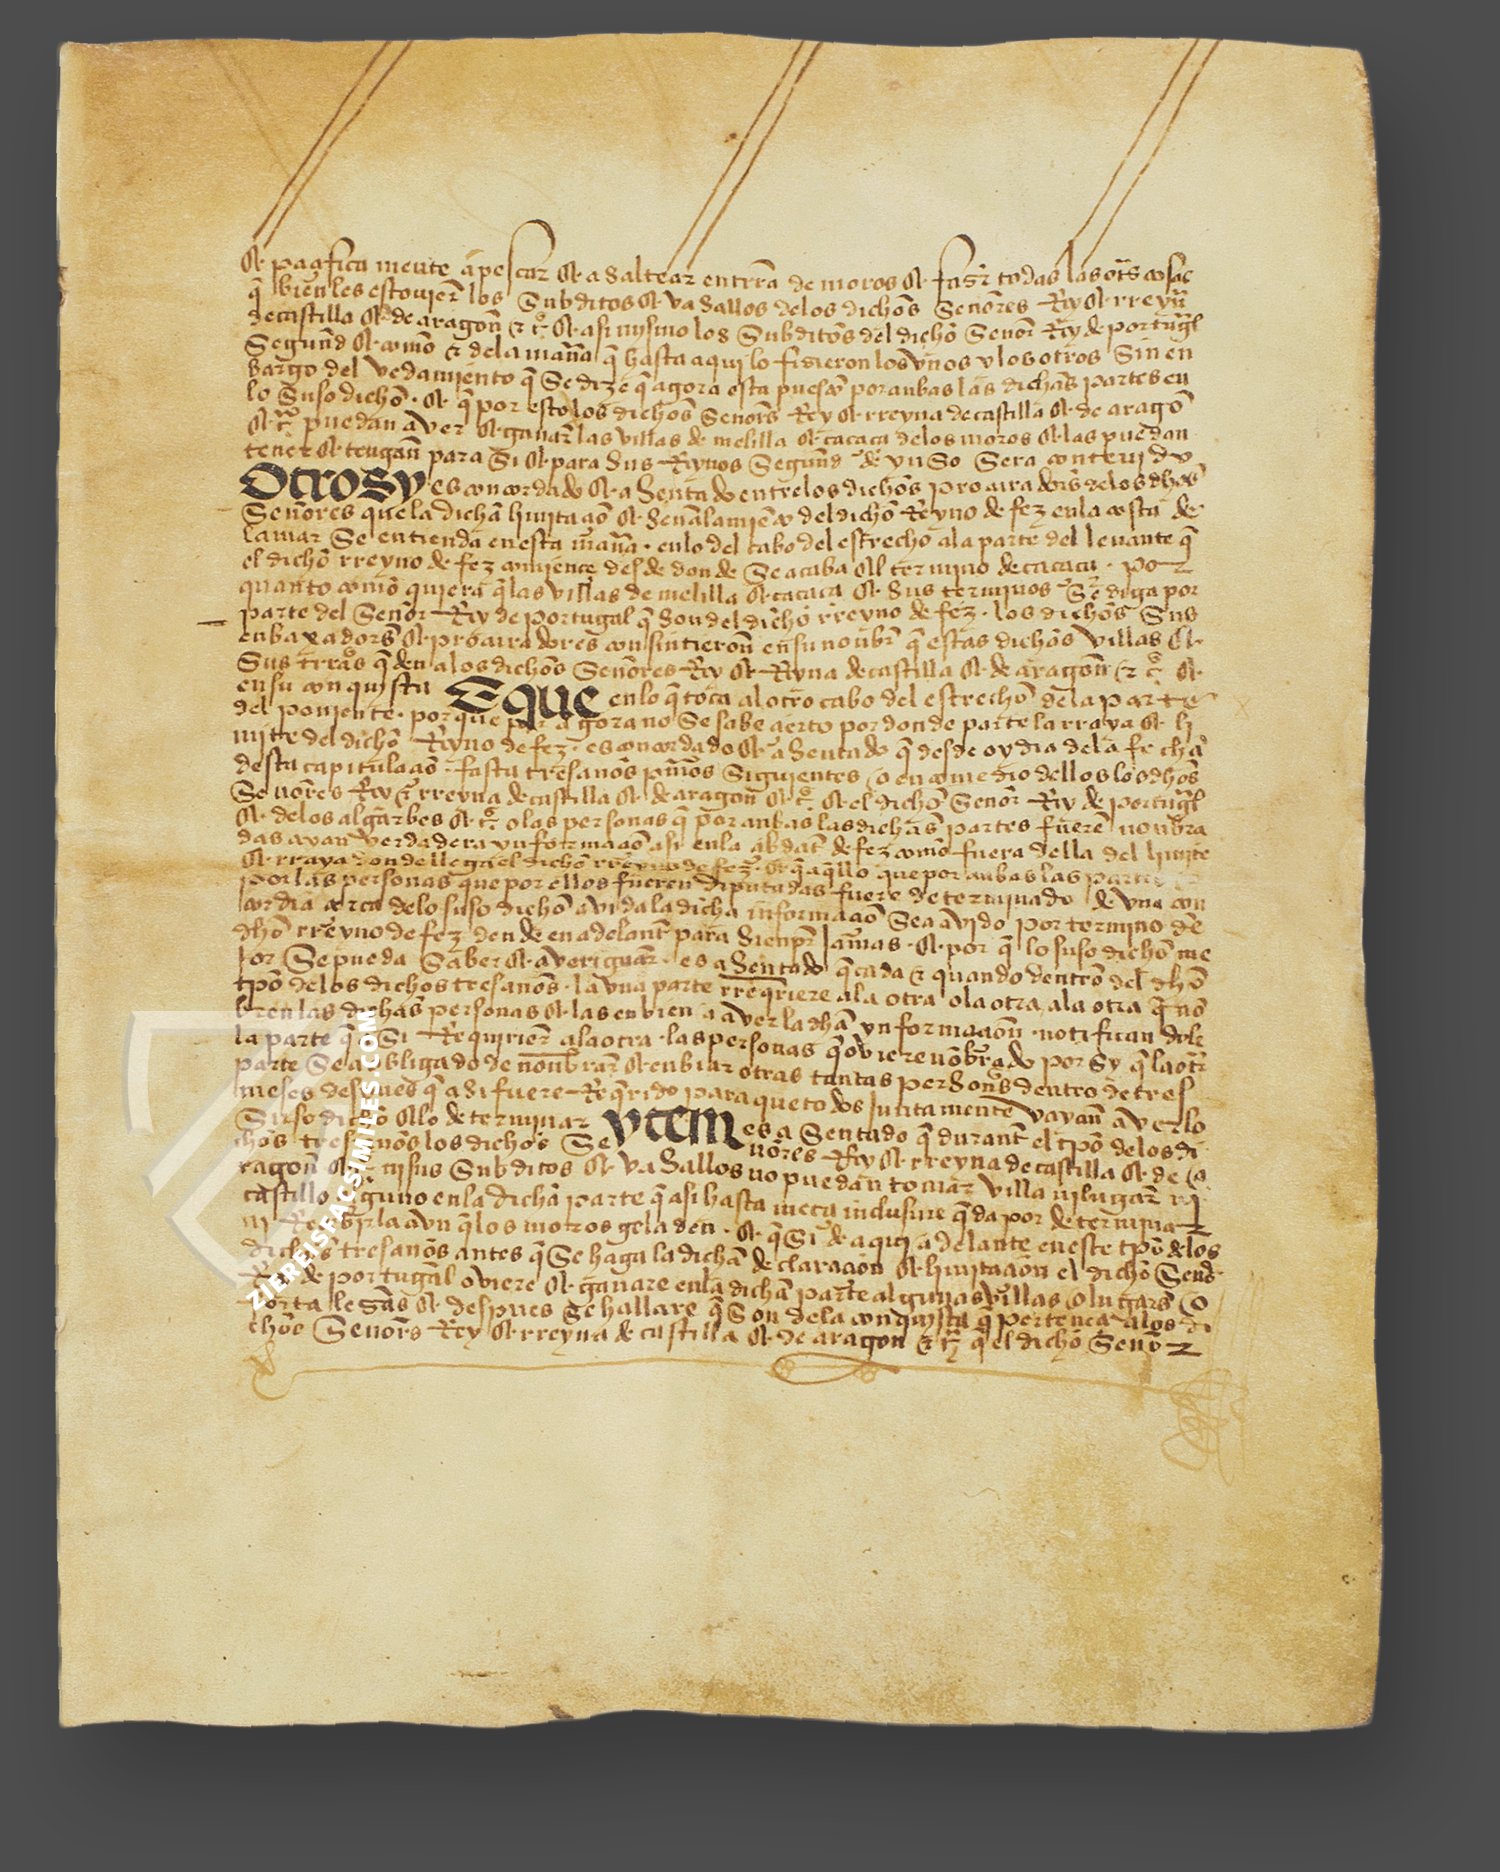 & paçificamente a pescar & a saltear en trrā de moros & faser todas las ots cosas
q̄ bien les estovierē los Subditos & vasallos de los dichos Senōres Rey & rreyn̄
de castilla & de aragon̄ & c̄ & asi mismo los Subditos del dichō Senōr Rey de portug̃l
Segund̄ & com̄o & de la man̄a q̄ hasta aqui lo fisieron los vnos y los otros Sin en
bargo del vedamiento q̄ Se dize q̄ agora esta puesto por anbas las dichas̄ partes en
lo Suso dichō · & q̄ por esto los dichos̄ Senōrs Rey & rreyna de castilla & de aragō
& c̄ puedan aver & ganar̄ las villas de melilla & caçaça de los moros & las puedan
tener & tengan̄ para Si & para sus Reynos Segund̄ de vuso Sera contenido
Otrosy es concordado & asentado entre los dichos̄ procuradors̄ de los dhos̄
Senōres que la dichā limitaçiō & Senālamiēto del dichō Reyno de fez en la costa de
la mar Se entienda en esta man̄a · en lo del cabo del estrechō a la parte del levante q̄
el dichō rreyno de fez comiençe desde donde Se acaba el termino de caçaça · por
quanto com̄o quiera q̄ las villas de melilla & caçaça & sus terminos Se diga por
parte del Senōr Rey de portugal q̄ son del dichō rreyno de fez · los dichos̄ Sus
enbaxadors̄ & procuradores consintieron̄ en su nonbr̄ q̄ estas dichas̄ villas &
Sus trras̄ q̄den a los dichos Senōres Rey & Reyna de castilla & de aragon̄ & c̄ &
en su conquista E que en lo q̄ toca al otro cabo del estrechō de la parte
del poniente · porque por agora no Se sabe çierto por donde parte la rraya & li
mite del dichō Reyno de fez · es concordado & asentado q̄ desde oy dia de la fecha
desta capitulaçiō · fasta tres anōs pm̄os Siguientes / o en comedio dellos los dhos̄
Senōres Rey & rreyna de castilla & de aragon̄ & c̄ & el dichō Senōr Rey de portug̃l
& de los algarbes & c̄ o las personas q̄ por anbas las dichas̄ partes fuerē nonbra
das ayan verdadera ynformaçiō asi en la abdat̄ de fez com̄o fuera della del limite
& rraya donde llega el dichō rreyno de fez · & q̄ aq̄llo que por anbas las partes
por las personas que por ellos fueren diputadas fuere determinado de vna con
cordia çerca de lo suso dichō avida la dicha informaçiō Sea avido por termino de
dhō rreyno de fez dende en adelant̄ para sienpr̄ jamas · & por q̄ lo suso dichō me
jor Se pueda Saber & averiguar̄ · es asentado q̄ cada & quando dentrō del dhō
tpō de los dichos tres anōs · la vna parte rreq̄riere a la otra / o la otra a la otra q̄ nō
bren las dichas̄ personas & las enbien a aver la dhā ynformaçion̄ · notificando le
la parte q̄ asi Requirier̄ a la otra · las personas q̄ oviere nōbrado por Sy q̄ la otr̄
parte Sea obligado de nonbrar̄ & enbiar otras tantas personas̄ dentro de tres
meses despues q̄ asi fuere Req̄rido para que todos juntamente vayan̄ a ver lo
Suso dichō & lo determinar ytem es asentado q̄ durant̄ el tpō de los di
chos̄ tres anōs los dichos Senōres Rey & rreyna de castilla & de a
ragon̄ & c̄ ni sus Subditos & vasallos no puedan tomar̄ villa ni lugar̄ ni
castillo alguno en la dichā parte q̄ asi hasta meça inclusive q̄da por determinar
ni Resçebirla avn q̄ los moros ge la den · & q̄ Si de aqui adelante en este tpō de los
dichos̄ tres anōs antes q̄ Se haga la dichā declaraçion & limitaçion el dichō Senōr
Rey de portugal oviere & ganare en la dichā parte algunas villas / o lugars̄ / o
fortalesas̄ & despues Se hallare q̄ Son de la conquista q̄ pertençe a los di
chos Senōrs Rey & rreyna de castilla & de aragon & c̄ q̄ el dichō Senōr
ZIEREISFACSIMILES.COM